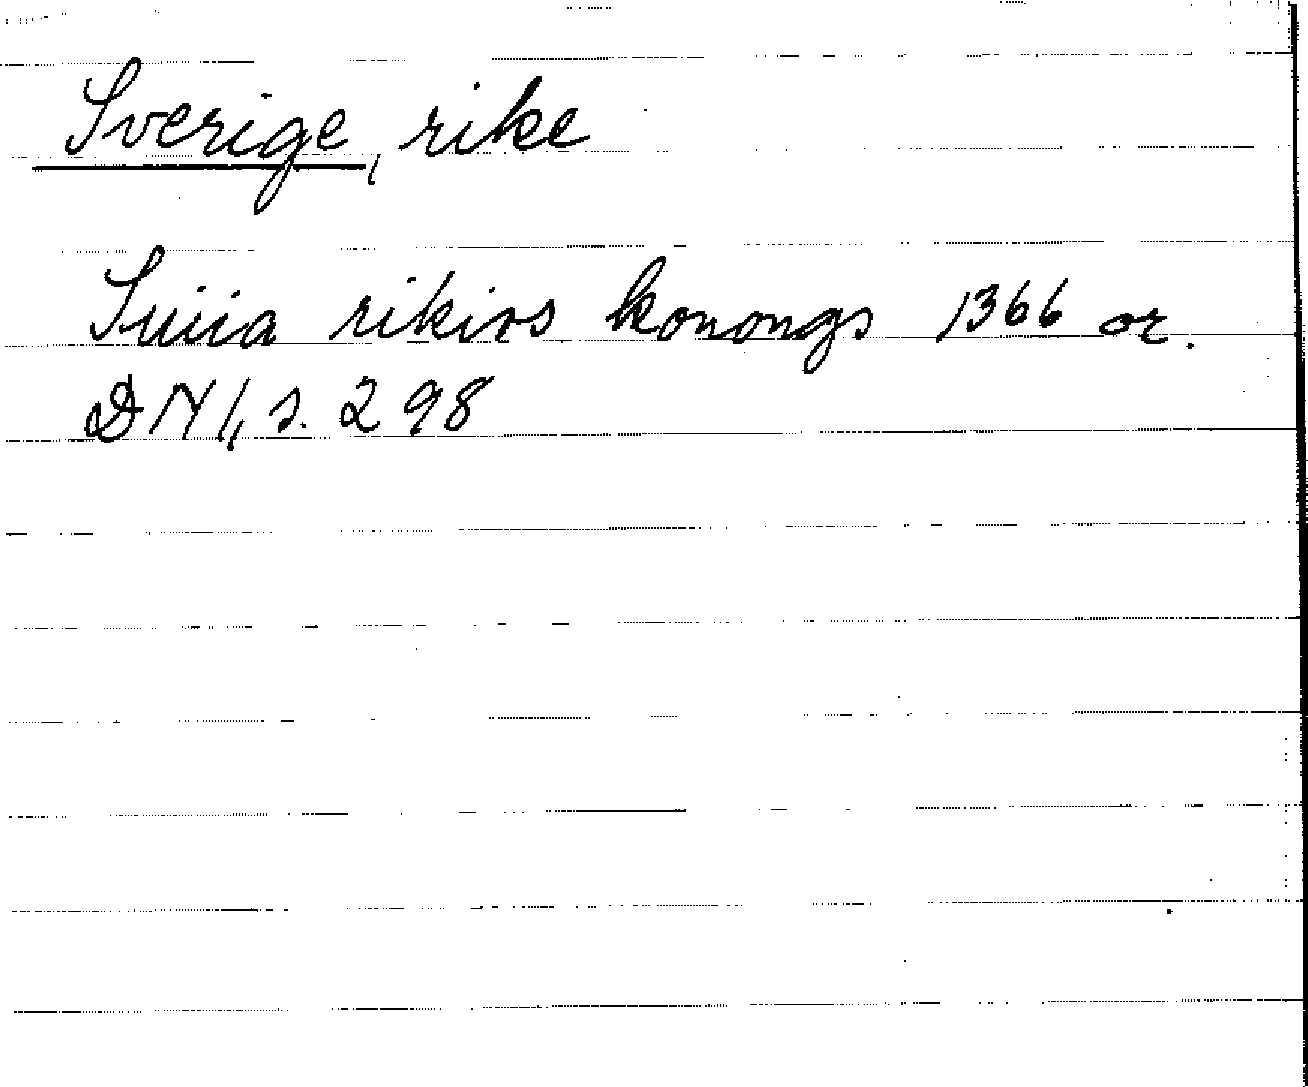 Sverige, rike
Suiia rikirs konongs 1366 or.
DN 1, s. 298